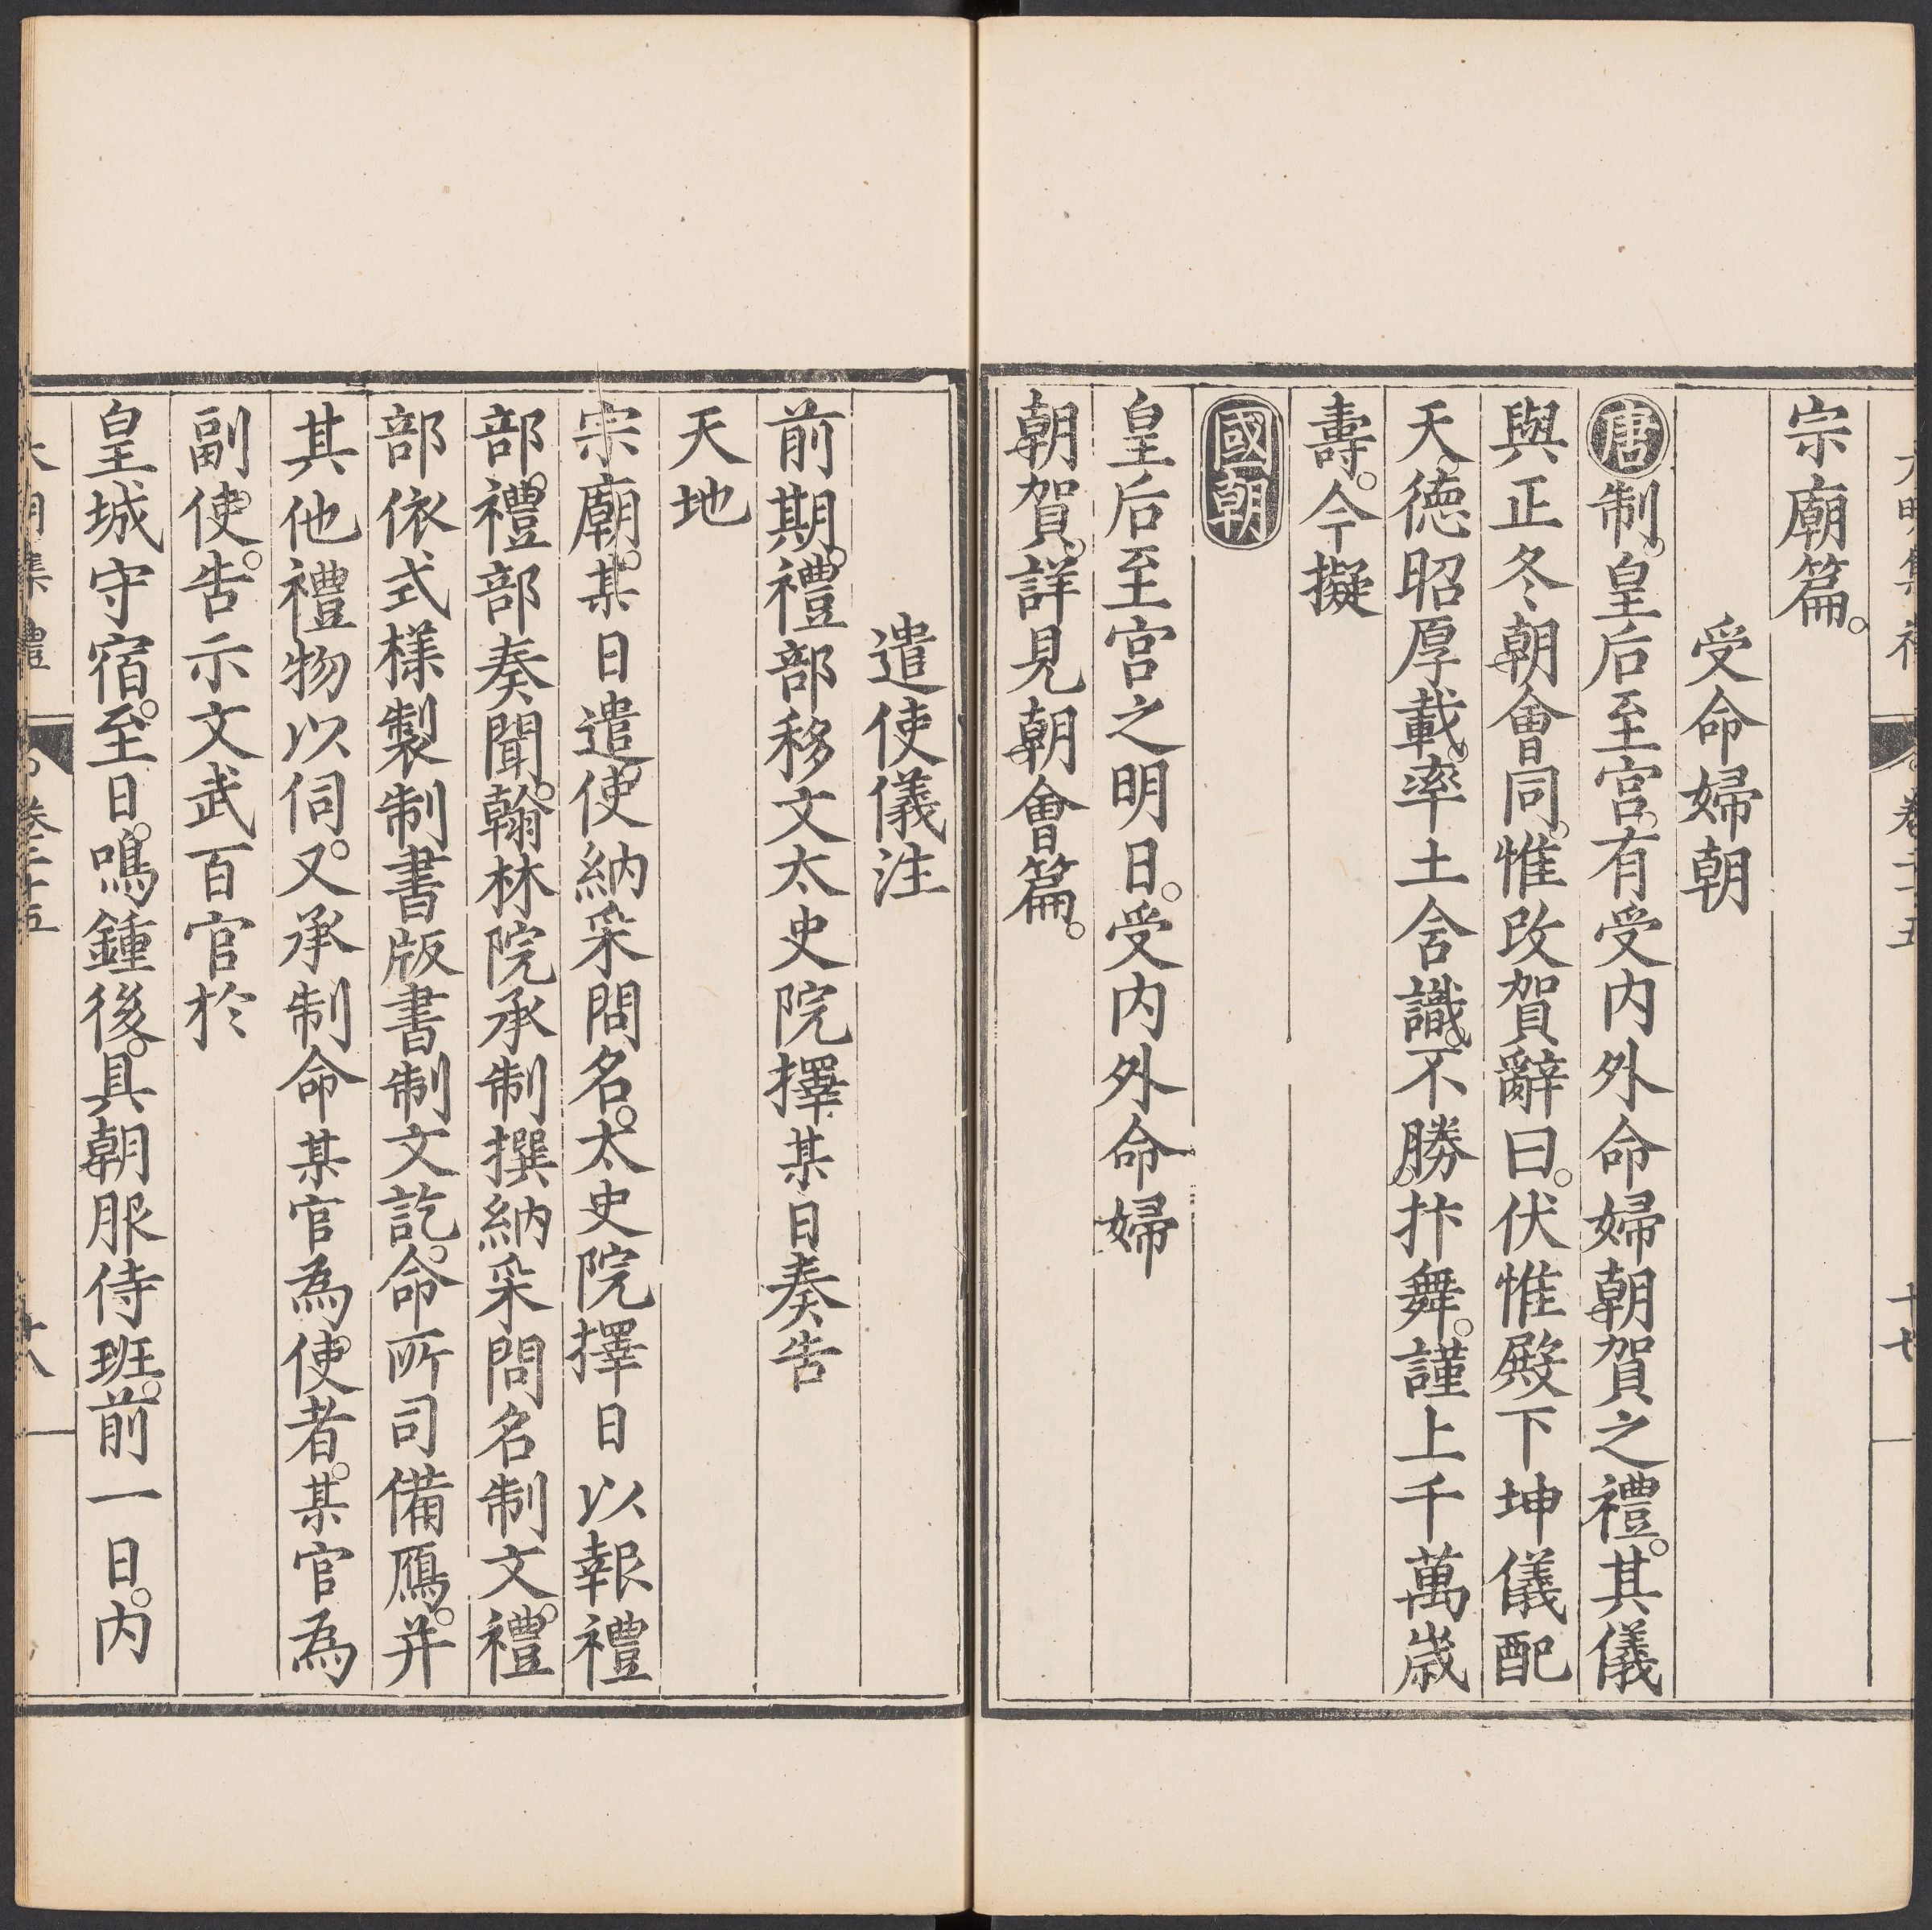 大明集禮 卷二十五 十七
宗廟篇。
受命婦朝
唐制。皇后至宮。有受内外命婦朝賀之禮。其儀
與正冬朝會同。惟改賀辭曰。伏惟殿下坤儀配
天。德昭厚載。率土含識。不勝抃舞。謹上千萬歲
壽。今擬
國朝
皇后至宮之明日。受内外命婦
朝賀。詳見朝會篇。
遣使儀注
前期。禮部移文太史院擇某日奏告
天地
宗廟。某日遣使納采問名。太史院擇日以報禮
部。禮部奏聞。翰林院承制撰納采問名制文。禮
部依式樣製制書版書制文訖。命所司備鴈。并
其他禮物以伺。又承制命某官為使者。某官為
副使。告示文武百官於
皇城守宿。至日。鳴鍾後。具朝服侍班。前一日。内
大明集禮 卷二十五 十八